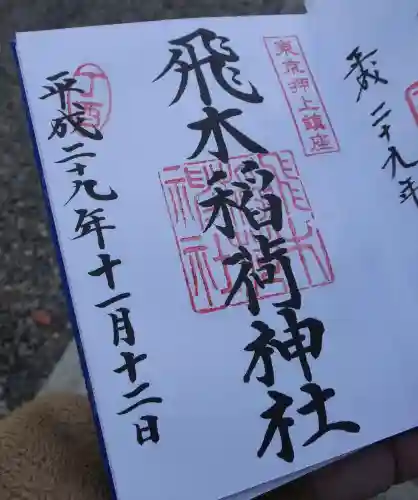 平成二十九年
東京押上鎮座
飛木稲荷神社
丁酉
平成二十九年十一月十二日